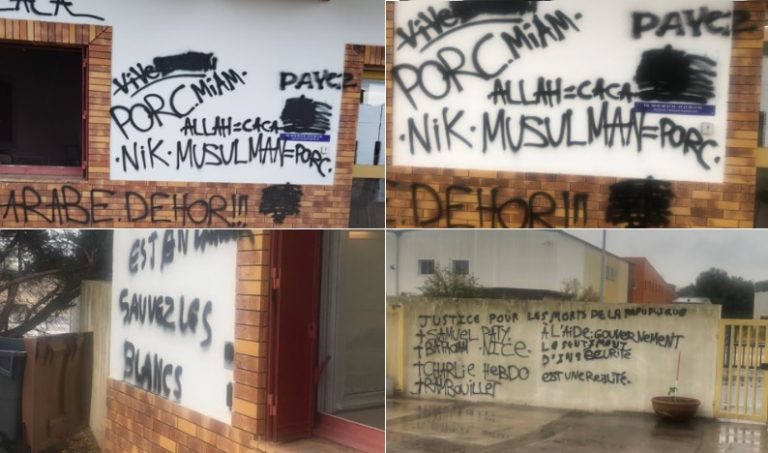 CACA
VIVE
PORC.MIAM.
PAYEZ
ALLAH=CACA
.NIK.MUSULMAN=PORC.
ARABE.DEHOR!!!
VIVE
PORC.MIAM.
PAYEZ
ALLAH=CACA
.NIK.MUSULMAN=PORC.
E.DEHOR!!!
EST EN
SAUVEZ LES
BLANCS
JUSTICE POUR LES MORTS DE LA REPUBLIQUE
†SAMUEL PATY
†BATACLAN.NICE.
†CHARLIE HEBDO
†RAMBOUILLET
À L'AIDE:GOUVERNEMENT
LE SENTIMENT
D'INSECURITÉ
EST UNE REALITÉ.